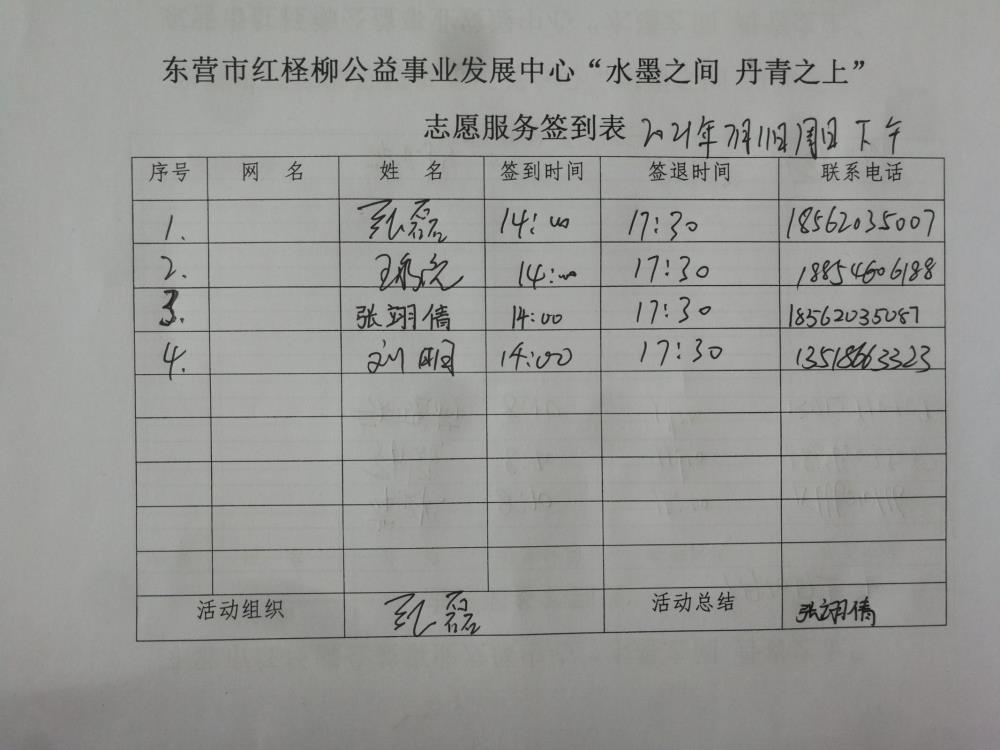 东营市红柽柳公益事业发展中心“水墨之间 丹青之上”
志愿服务签到表 2021年7月11日周日下午
序号 网 名 姓 名 签到时间 签退时间 联系电话
1. 磊 14:00 17:30 18562035007
2. 王 14:00 17:30 18854606188
3. 张翊倩 14:00 17:30 18562035087
4. 刘明 14:00 17:30 13518663323
活动组织 磊 活动总结 张翊倩